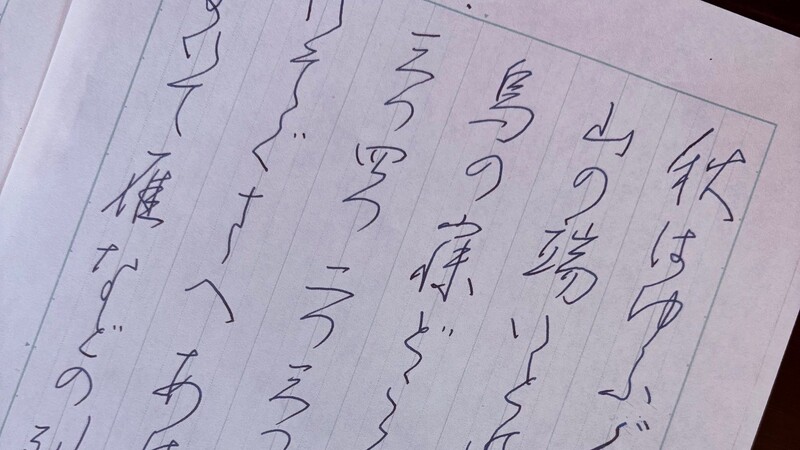 秋はゆふぐ
山の端いと
烏の寐どこ
三つ四つ二つ三つ
いそぐさへあは
いて雁などの列